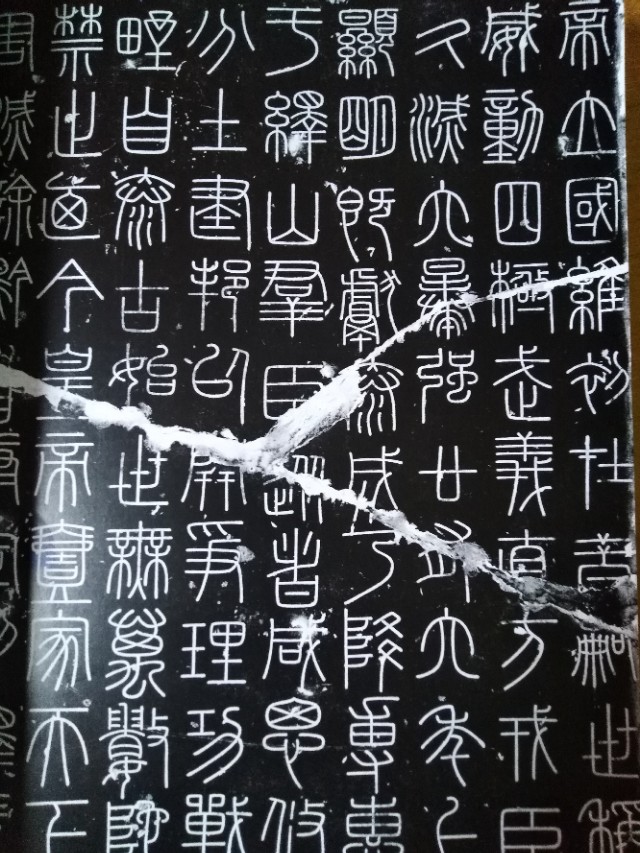 帝立國維初在昔嗣世稱
威動四極武義直方戎臣
久滅六暴強廿有六年上
顯明既獻泰成乃降專惠
于繹山羣臣從者咸思攸
分土建邦以開爭理功戰
野自泰古始世無萬數陀
禁止迺今皇帝壹家天下
害滅除黔首康定利